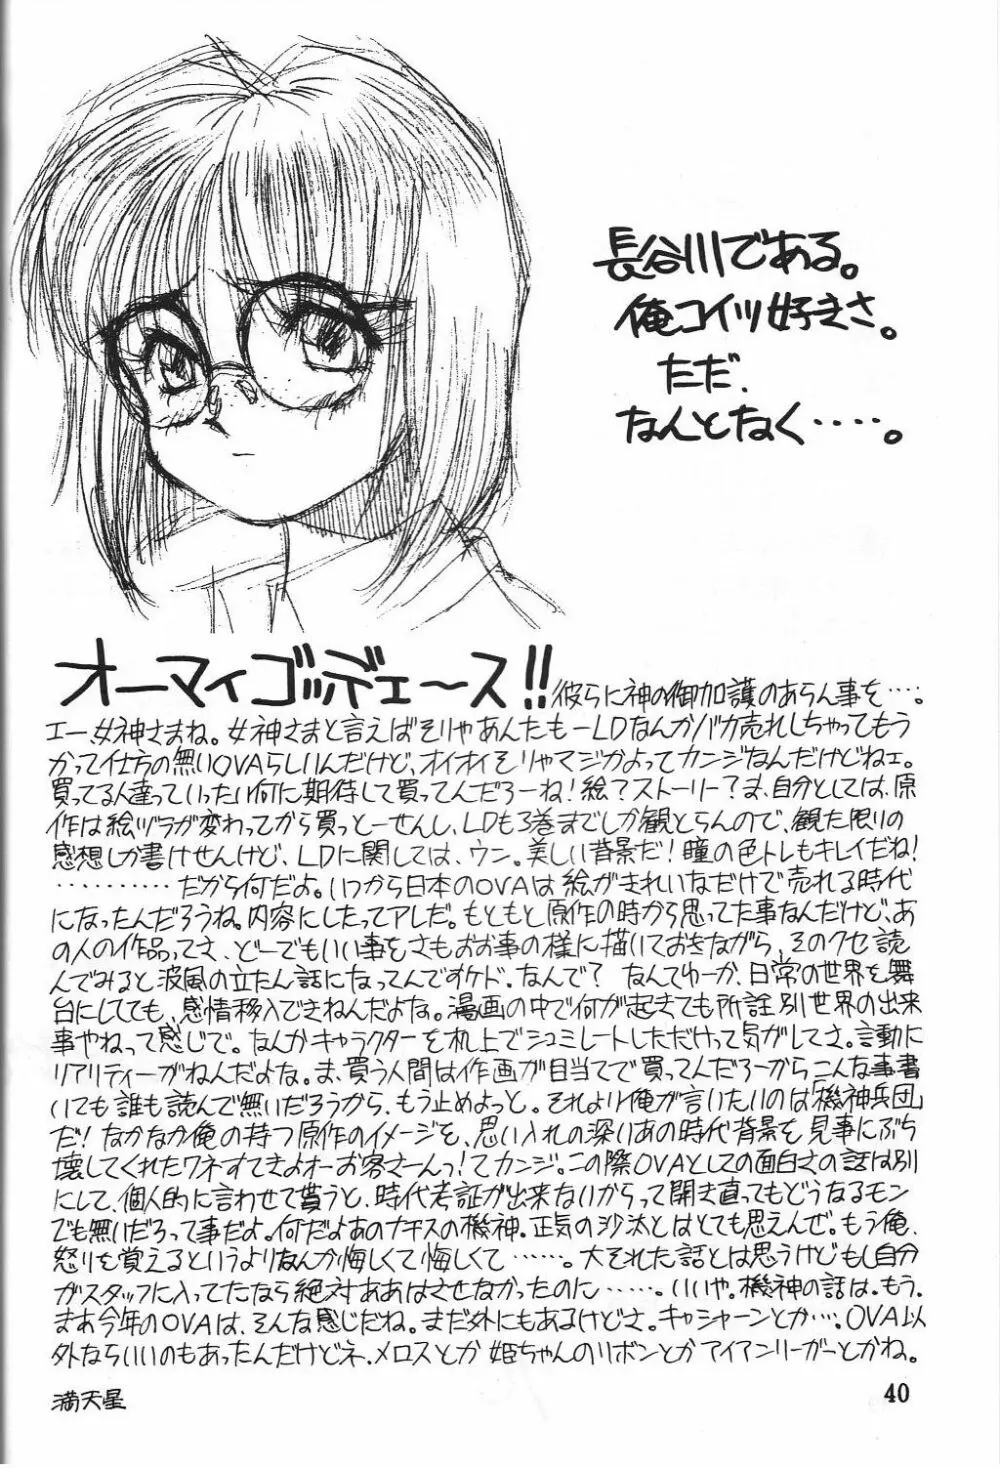 長谷川である。
俺コイツ好きさ。
ただ、
なんとなく‥‥。
オーマイゴッデェ〜ス!! 彼らに神の御加護のあらん事を‥‥。
エー、女神さまね。女神さまと言えばそりゃあんたもーLDなんかバカ売れしちゃってもう
かって仕方の無いOVAらしいんだけど、オイオイそりゃマジかよってカンジなんだけどねェ。
買ってる人達っていったい何に期待して買ってんだろーね!絵?ストーリー?ま、自分としては、原
作は絵ヅラが変わってから買っとーせんし、LDも3巻までしか観とらんので、観た限りの
感想しか書けせんけど、LDに関しては、ウン。美しい背景だ!瞳の色トレもキレイだね!
‥‥‥‥‥だから何だよ。いつから日本のOVAは絵がきれいなだけで売れる時代
になったんだろうね。内容にしたってアレだ。もともと原作の時から思ってた事なんだけど、あ
の人の作品ってさ、どーでもいい事をさもおお事の様に描いておきながら、そのクセ読
んでみると波風の立たん話になってんですケド。なんで? なんてゆーか、日常の世界を舞
台にしてても、感情移入できねんだよな。漫画の中で何が起きても所詮別世界の出来
事やねって感じで。なんかキャラクターを机上でシュミレートしただけって気がしてさ。言動に
リアリティーがねんだよな。ま、買う人間は作画が目当てで買ってんだろーからこんな事書
いても誰も読んで無いだろうから、もう止めよっと。それより俺が言いたいのは「機神兵団」
だ!なかなか俺の持つ原作のイメージを、思い入れの深いあの時代背景を見事にぶち
壊してくれたワネすてきよオーお客さーんっ!てカンジ。この際OVAとしての面白さの話は別
にして、個人的に言わせて貰うと、時代考証が出来ないからって開き直ってもどうなるモン
でも無いだろって事だよ。何だよあのナチスの機神。正気の沙汰とはとても思えんぜ。もう俺、
怒りを覚えるというよりなんか悔しくて悔しくて‥‥‥。大それた話とは思うけどもし自分
がスタッフに入ってたなら絶対ああはさせなかったのに‥‥‥。いいや。機神の話は。もう。
まあ今年のOVAは、そんな感じだね。まだ外にもあるけどさ。キャシャーンとか‥‥。OVA以
外ならいいのもあったんだけどネ、メロスとか姫ちゃんのリボンとかアイアンリーガーとかね。
満天星
40